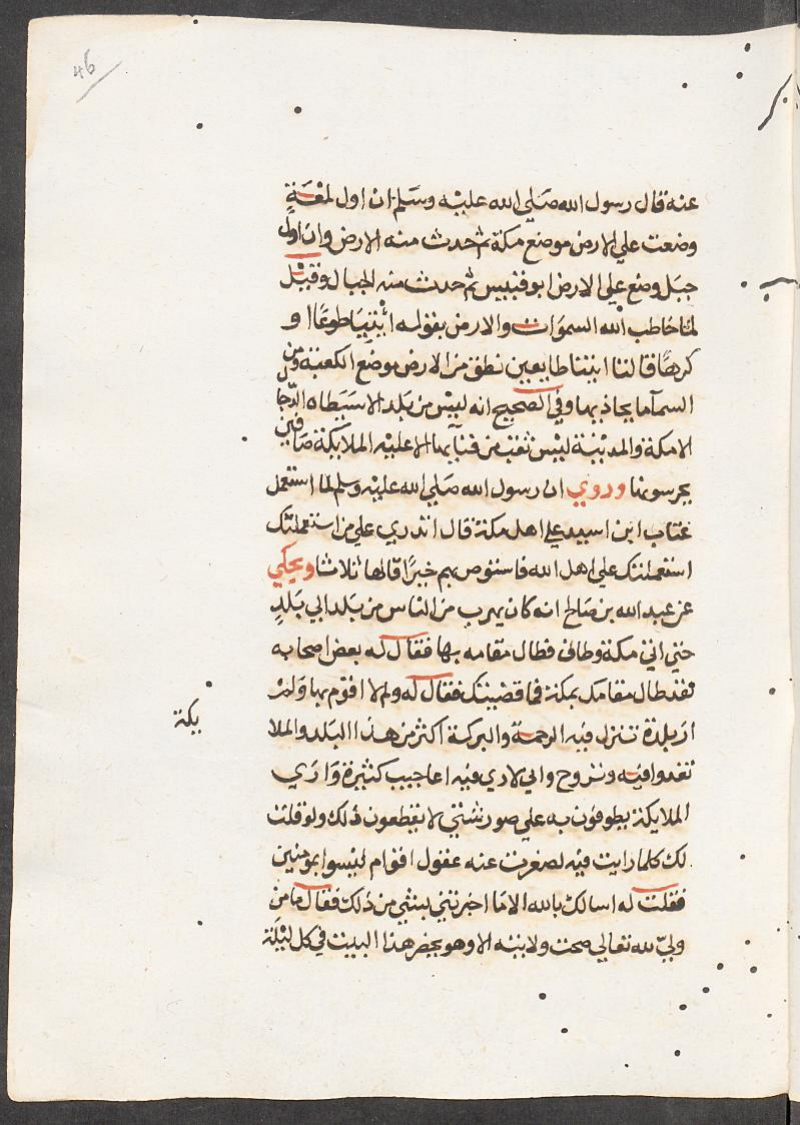 46
عنه قال رسول الله صَلي الله عليْه وسَلم ان اول لمْعَةٍ
وضعت علي الارض موضع مكة ثم حدث منه الارض وان اول
جبَل وضع علي الارض ابو قبيس ثم حدث منه الجبال وقيْل
لمّا خاطب الله السموَات والارض بقوله ائتِيَا طوعًا او
كرهًا قالتا اتينا طايعين نطق من الارض موضع الكعبة ومن
السمآ ما يحاذيها وفي الصحيح انه ليْس من بَلد الا سَيَطاه الدّجا
الا مكة والمديْنة ليْس نقب من نقابها الا عليْه الملايكة صَافين
يحرسونها وروي ان رسول الله صَلي الله عليْه وسلم لما استعمل
عتاب ابن اسيد علي اهل مكة قال اتدري علي من استعملتك
استعملتك علي اهل الله فاستوص بهم خيرًا قالها ثلاثا ويحكي
عن عبد الله بن صَالح انه كان يهرب من الناس من بَلد الي بَلدٍ
حتي اتي مكة وطاف فطال مقامه بها فقال له بعض اصحابه
لقد طال مقامك بمكة فما قضيتك فقال له ولم لا اقوم بها ولم
ار بلدة تنزل فيْه الرحمة والبركة اكثر من هذا البَلد والملا
تغدوا فيْه وتروح واني لاري فيْه اعاجيب كثيرة وَاري
الملايكة يطوفون به علي صور شتي لا يقطعون ذلك ولو قلت
لك كلما رايت فيْه لصغرت عنه عقول اقوام ليْسوا بمومنين
فقلت له اسالك بالله الا ما اخبرتني بشي من ذلك فقال ما من
ولي لله تعالي صحت ولايته الا وهو يحضر هذا البيت في كل ليْلة
يكة